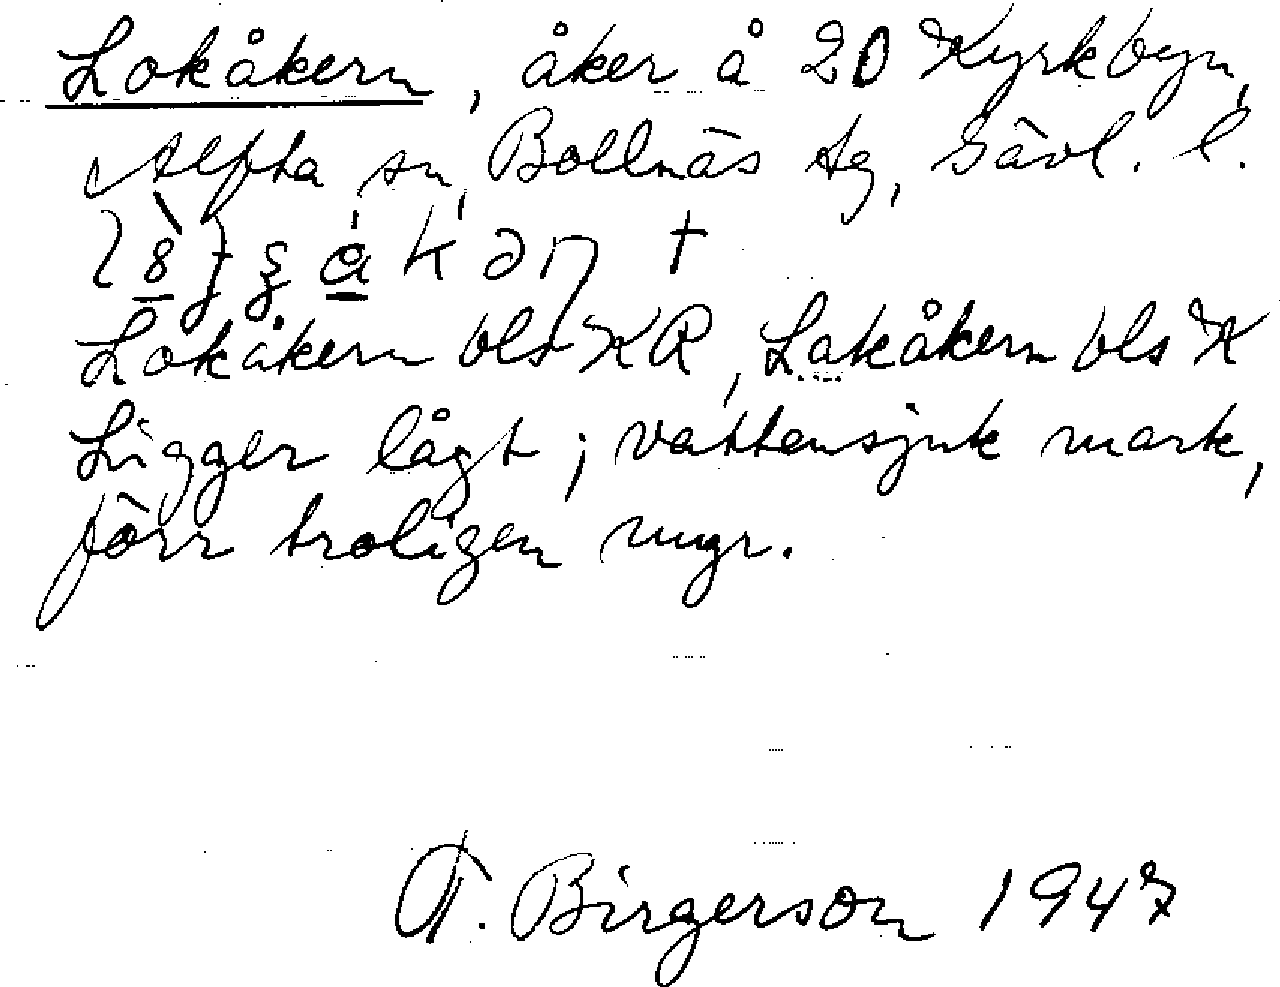 Lokåkern, åker å 2D Kyrkbyn,
Alfta sn, Bollnäs tg, Gävl. l.
Lokåkern bls KR, Lakåkern bls K
Ligger lågt; vattensjuk mark,
förr troligen myr.
T. Birgerson 1947